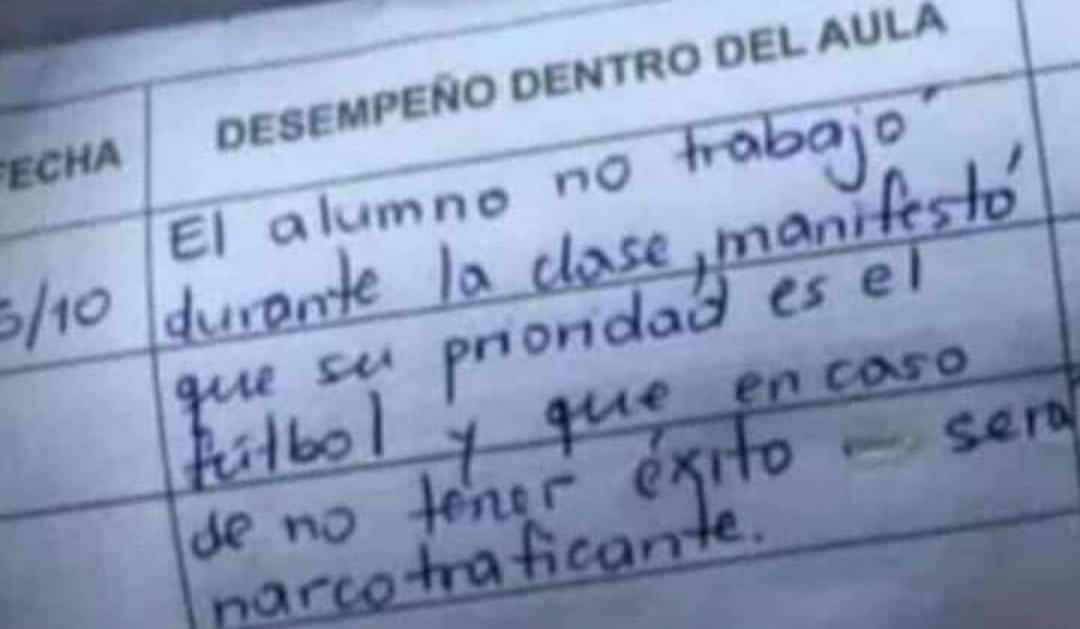 FECHA DESEMPEÑO DENTRO DEL AULA
El alumno no trabajó
/10 durante la clase, manifestó
que su prioridad es el
fútbol y que en caso
de no tener éxito sera
narcotraficante.